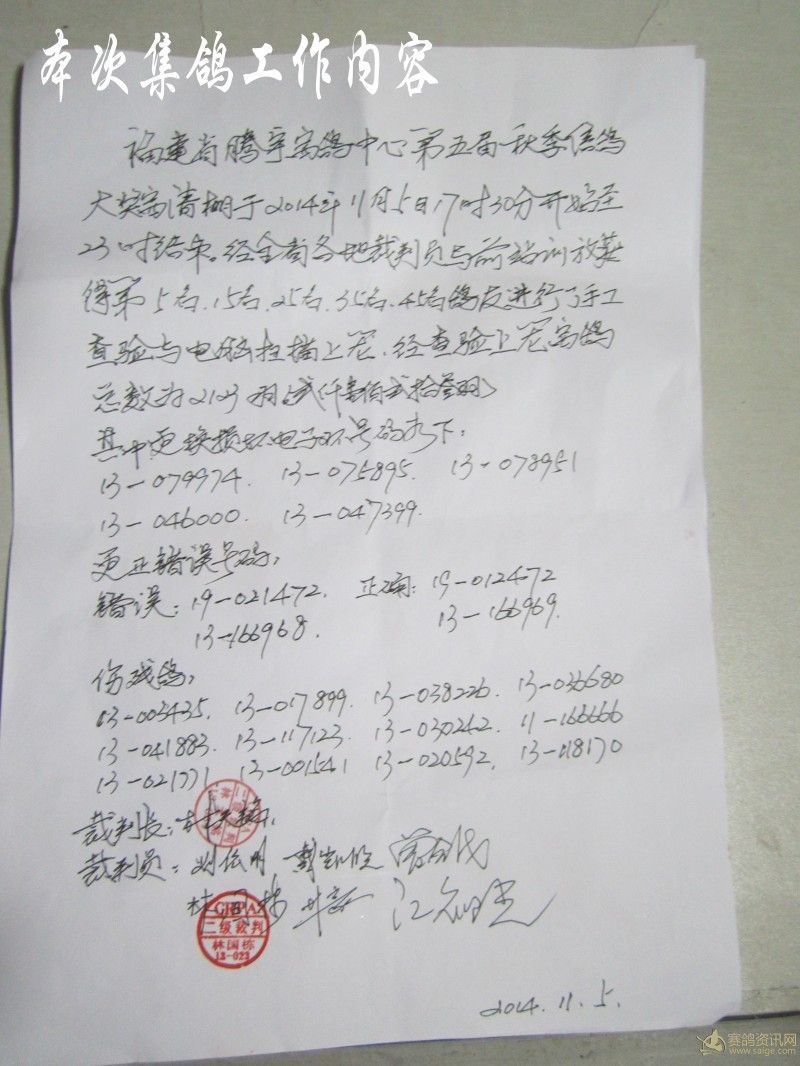 本次集鸽工作内容
福建省腾宇赛鸽中心第五届秋季信鸽
大奖赛清棚于2014年11月5日17时30分开始至
23时结束。经全省各地裁判员与前站训放获
得第5名、15名、25名、35名、45名鸽友进行了手工
查验与电脑扫描上笼、经查验上笼赛鸽
总数为2123羽(贰仟壹佰贰拾叁羽)
其中更换损坏电子环号码如下:
13-079974. 13-075895. 13-078951
13-046000. 13-047399.
更正错误号码:
错误:19-021472. 正确:19-012472
13-166968. 13-166969.
伤残鸽:
13-003435. 13-017899. 13-038226. 13-036680
13-041883. 13-117123. 13-030242. 11-166666
13-021771 13-001541 13-020592. 13-018170
裁判长:
裁判员:
二级裁判
林国栋
13-023
2014.11.5.
赛鸽资讯网
www.saige.com